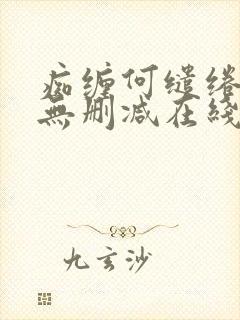 痴缠何缱绻
無删减在綫
九玄沙